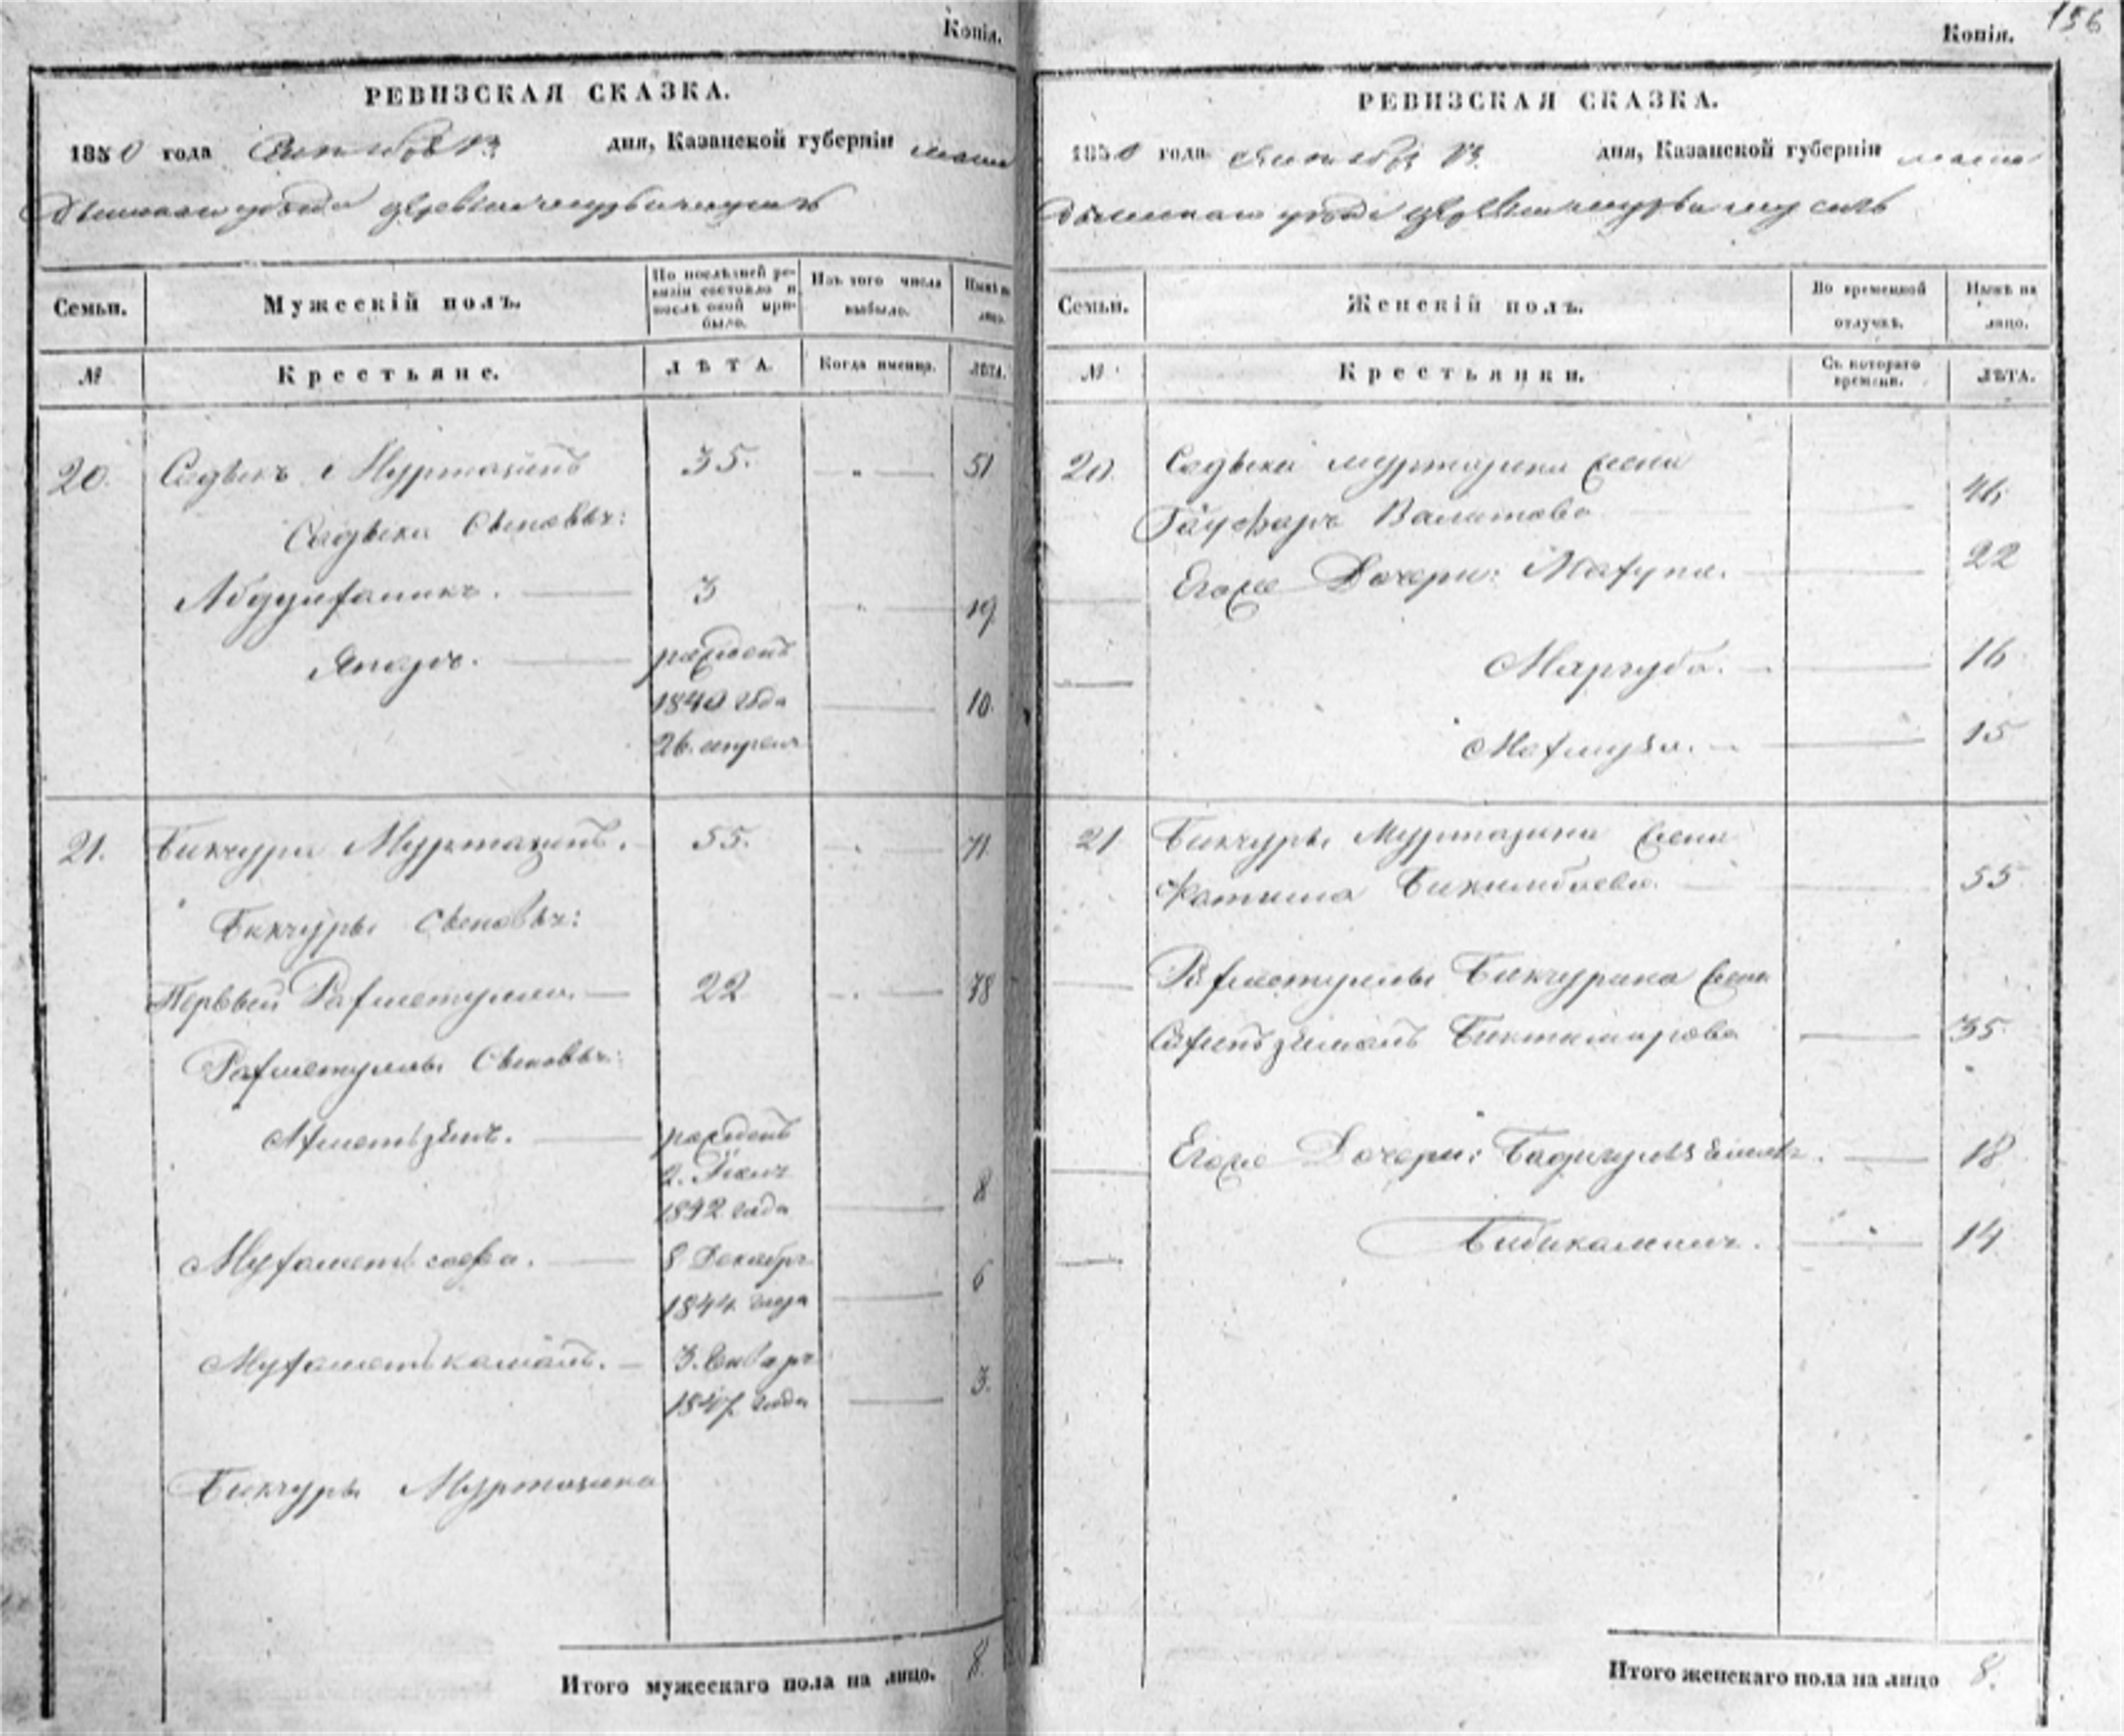 Копія.
РЕВИЗСКАЯ СКАЗКА.
1850 года дня, Казанской губерніи мама
дышскаго уѣзда деревни
Семьи.
Мужескій полъ.
По послѣдней ре-
визіи состояло и
послѣ оной при-
было.
Изъ того числа
выбыло.
Нынѣ на
лицо.
№
Крестьяне.
ЛѢТА.
Когда именно.
ЛѢТА.
20. Садыкъ Муртазинъ 35. 51
Садыка Сыновья:
3 19
Япаръ. рожденъ
1840 года 10.
26. апреля
21. Бикчура Муртазинъ. 55. 71.
Бикчуры Сыновья:
Первый Рахметулла. 22 38
Рахметуллы Сыновья:
Ахметзянъ. рожденъ
2. Іюля
1842 года 8
Мухаметсафа. 8 Декабря
1844 года 6
Мухаметкамалъ. 3. Января
1847 года 3.
Бикчуры Муртазина
Итого мужескаго пола на лицо. 8.
156
Копія.
РЕВИЗСКАЯ СКАЗКА.
1850 года дня, Казанской губерніи мама
дышскаго уѣзда деревни
Семьи.
Женскій полъ.
Во временной
отлучкѣ.
Нынѣ на
лицо.
№
Крестьянки.
Съ котораго
времени.
ЛѢТА.
20. Садыка Муртазина жена
Гаухаръ Валитова 46
Егоже Дочери: 22
Маргуба. 16
15
21 Бикчуры Муртазина жена
Фатима 55
Рахметуллы Бикчурина жена
Биктимирова 35
Егоже Дочери: 18
Бибикамалъ. 14
Итого женскаго пола на лицо 8.